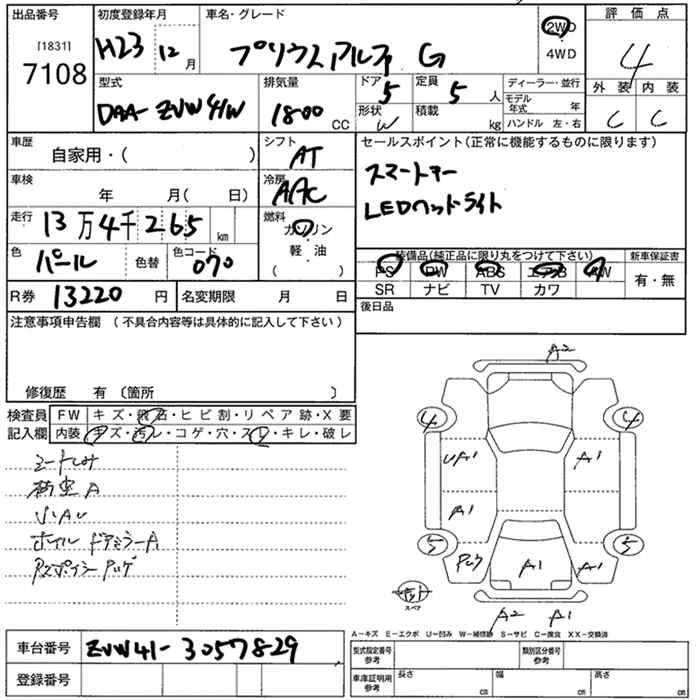 出品番号 初度登録年月 車名・グレード 評価点
[1831] 7108 H23 12月 プリウスアルファ G 2WD 4WD 4
型式 排気量 ドア 5 定員 5人 ディーラー・並行 外装 内装
DAA-ZVW41W 1800CC 形状 W 積載 kg モデル年式 年 ハンドル 左・右 C C
車歴 自家用・( ) シフト AT セールスポイント(正常に機能するものに限ります)
車検 年 月( 日) 冷房 AAC スマートキー
走行 13万4千265km 燃料 ガソリン LEDヘッドライト
色 パール 色替 色コード 070 軽・油 ( )
装備品(純正品に限り丸をつけて下さい) 新車保証書
PS PW ABS エアB AW 有・無
SR ナビ TV カワ
R券 13220円 名変期限 月 日 後日品
注意事項申告欄 (不具合内容等は具体的に記入して下さい)
修復歴 有 〔箇所 〕
検査員 FW キズ・飛石・ヒビ割・リペア跡・X要
記入欄 内装 キズ・汚レ・コゲ・穴・スレ・キレ・破レ
A2
4 4
UA1 A1
A1
5 5
A1 A1
スペア
A2 A1
ホイル ドアミラーA
A-キズ E-エクボ U-凹み W-補修跡 S-サビ C-腐食 XX-交換済
車台番号 ZVW41-3057829
登録番号
型式指定番号 参考 類別区分番号 参考
車庫証明用 参考 長さ cm 幅 cm 高さ cm